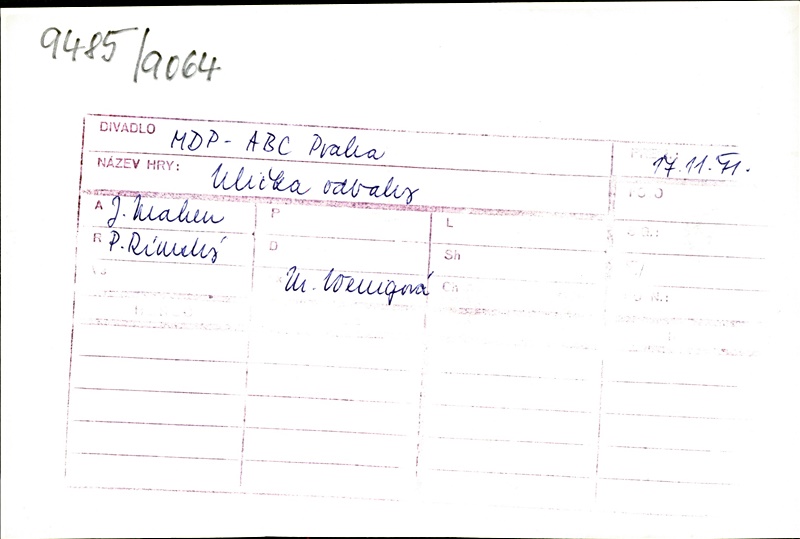 9485/9064
DIVADLO MDP - ABC Praha 17.11.71.
NÁZEV HRY: Ulička odvahy
A J. Mahen P L
R P. Rímský D Sh
M. Wenigová